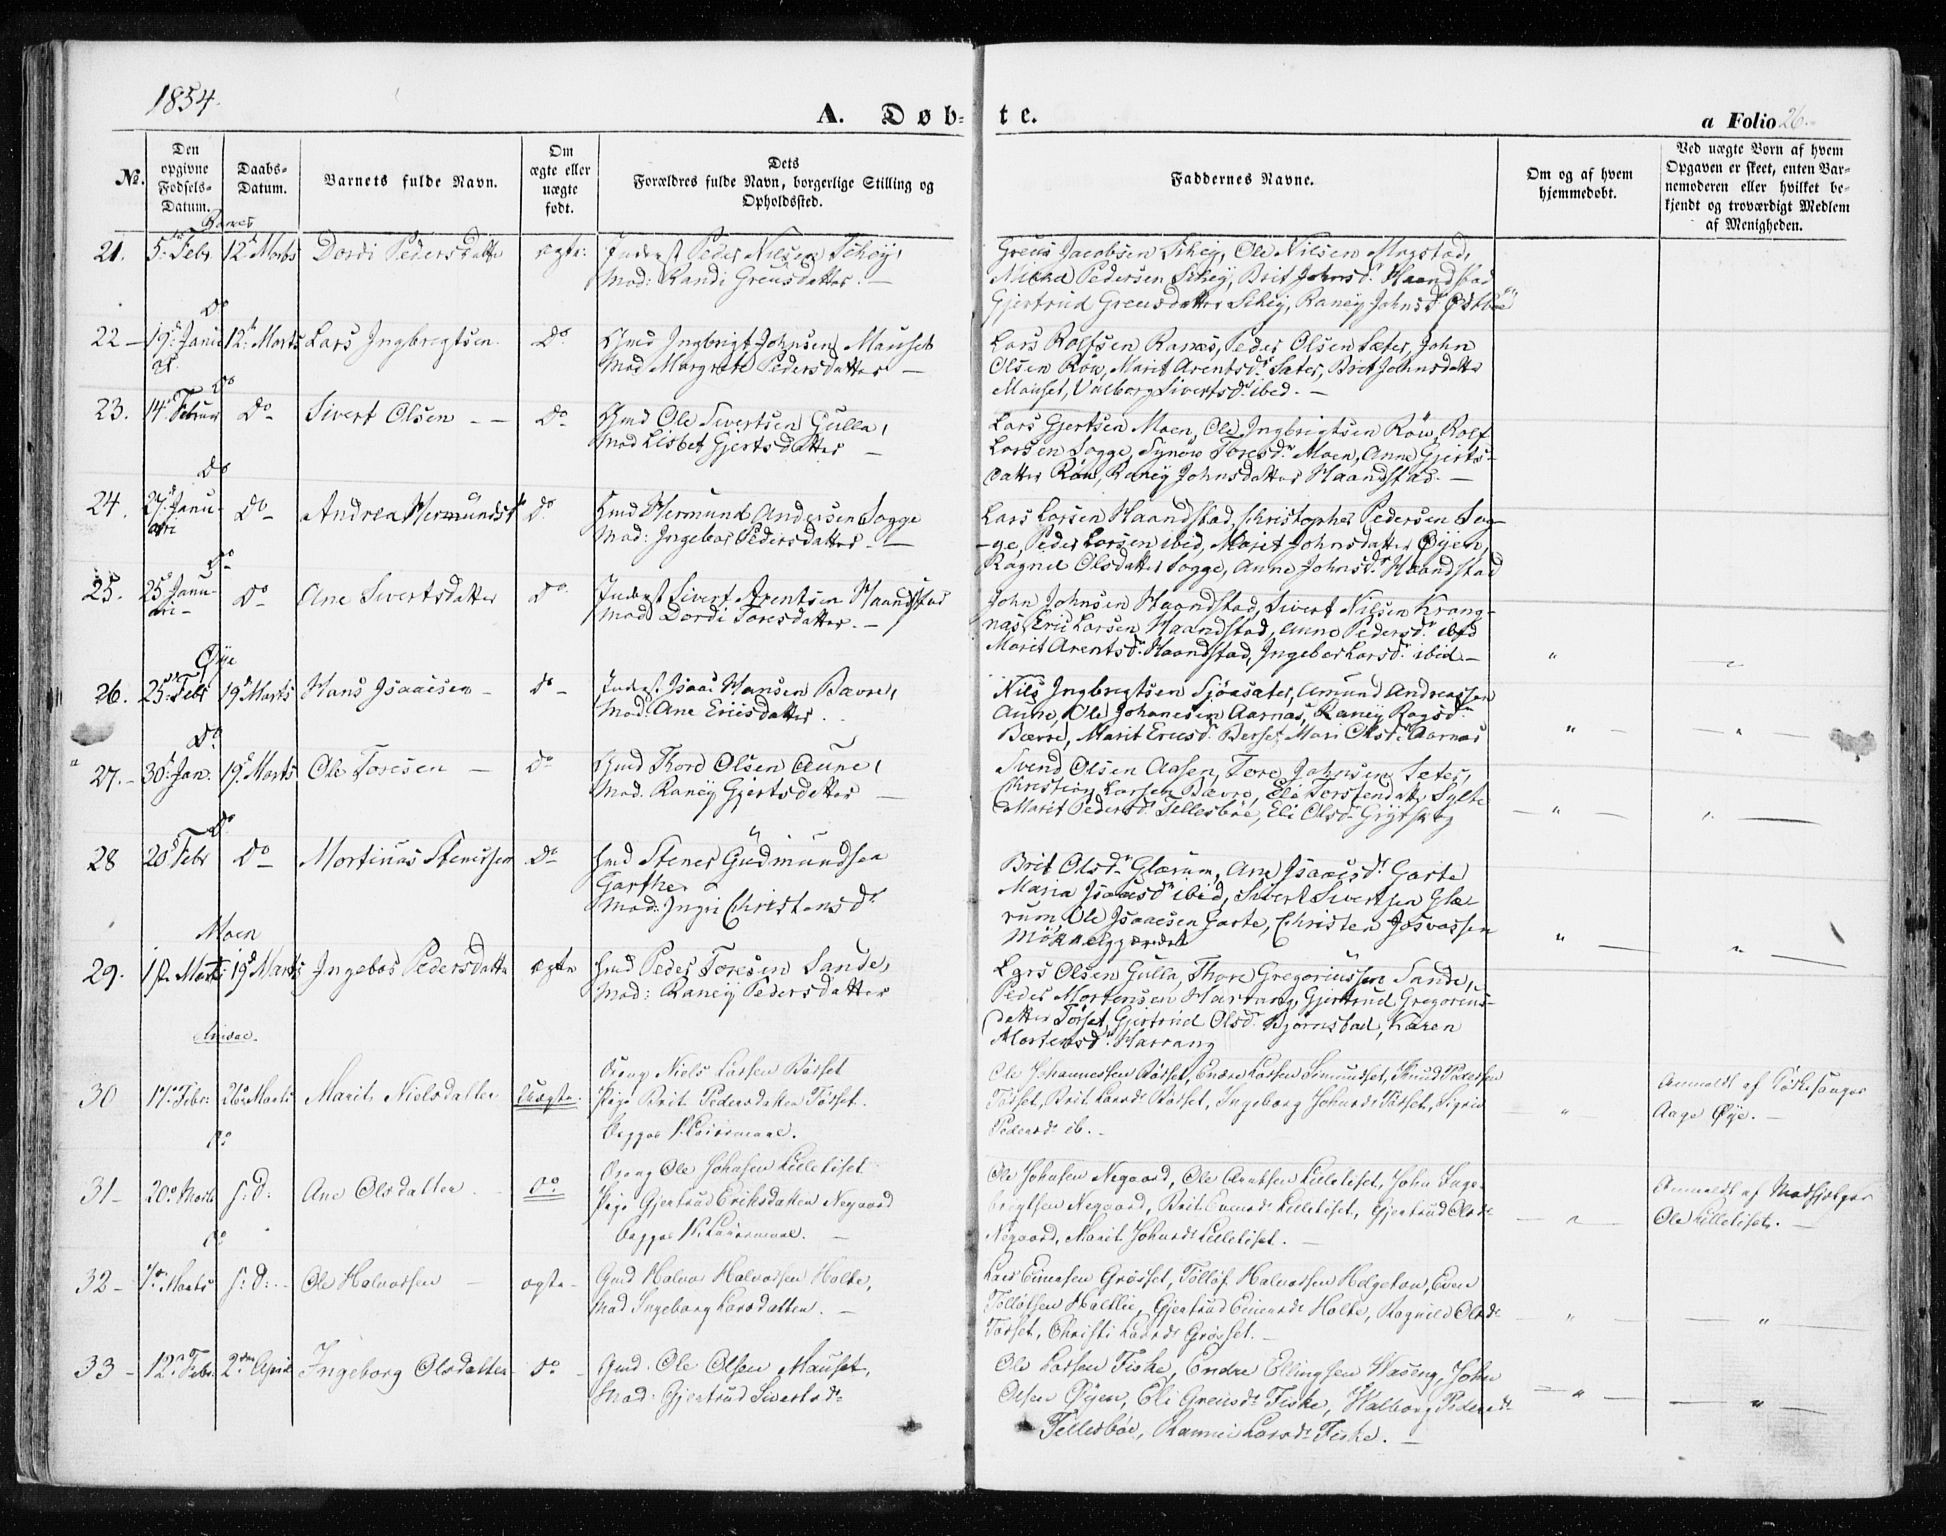 1854.
A. Døb-
te.
a Folio 26.
No.
Den opgivne Fødsels-Datum.
Daabs-Datum.
Barnets fulde Navn.
Om ægte eller uægte født.
Dets Forældres fulde Navn, borgerlige Stilling og Opholdssted.
Faddernes Navne.
Om og af hvem hjemmedøbt.
Ved uægte Børn af hvem Opgaven er skeet, enten Barnemoderen eller hvilket bekjendt og troværdigt Medlem af Menigheden.
Ranes
21. 5te Febr 12te Marts Dordi Pedersdatter ægte:
Inderst Peder Nilsen Schey,
Mod: Randi Greusdatter. —
Greus Jacobsen Schey, Ole Nilsen Mogstad,
Pedersen Schey, Brit Johnsdr Haandstad
Gjertrud Greusdatter Schey, Raney Johnsdr
Do
22 — 19de Janu 12te Marts Lars Ingbrigtsen Do
Gmd Ingbrigt Johnsen Mauset
Mod Margrete Pedersdatter —
Lars Rolfsen Ranæs, Peder Olsen Sæter, John
Olsen Røv, Marit Arentsdr Sæter, Brit Johnsdatter
Mauset, Valborg Sivertsdr ibed. —
Do
23. 14de Februar Do Sivert Olsen — — Do
Gmd Ole Sivertsen Gulla,
Mod Lisbet Gjertsdatter —
Lars Gjertsen Moen, Ole Ingbrigtsen Røv, Rolf
Larsen Sogge, Synøv Toresdr Moen, Anne Gjerts-
datter Røv, Raney Johnsdatter Haandstad. —
Do
24. 27de Janu-
ari Do Andrea Hermundsdr Do
Gmd Hermund Andersen Sogge
Mod: Ingebor Pedersdatter. —
Lars Larsen Haandstad, Christopher Pedersen Sog-
-ge, Peder Larsen ibid, Marit Johnsdatter Øyen,
Ragnil Olsdatter Sogge, Anne Johnsdr Haandstad
Do
25. 25de Janu-
ari — Do Ane Sivertsdatter Do
Inderst Sivert Arentsen Haandstad
Mod Dordi Toresdatter. —
John Johnsen Haandstad, Sivert Nilsen Krang-
næs, Eric Larsen Haandstad, Anne Pedersdr ibid
Marit Arentsdr Haandstad, Ingebor Larsdr ibid —
Øye
26. 25de Febr 19de Marts Hans Isaacsen — Do —
Inderst Isaac Hansen Bævre,
Mod: Ane Ericsdatter.
Nils Ingbrigtsen Sjøasæter, Amund Andreassen
Aune, Ole Johanesen Aarnæs, Raney
Bævre, Marit Ericsdr Berset, Mari Olsdr Aarnæs
Do
27. — 30te Jan: 19de Marts Ole Toresen — Do
Gmd Thore Olsen Aune,
Mod. Raney Gjertsdatter —
Svend Olsen Aasen, Tore Johnsen Sæter,
Christian Larsen Bævre, Eli Torstendatter Sylte
Marit Pedersdr Tellesbøe, Eli Olsdr
Do
28 20de Febr Do Mortinus Stenersen Do
Gmd Stener Gudmundsen
Garthe
Mod: Ingri Christensdr
Brit Olsdr Glærum, Ane Isaacsdr Garte
Maria Isaacsdr ibid, Sivert Sivertsen Glæ-
rum, Ole Isaacsen Garte, Christen Josvassen
Moen
29. 1ste Marts 19de Marts Ingebor Pedersdatter ægte
Gmd Peder Toresen Sande,
Mod: Raney Pedersdatter
Lars Olsen Gulla, Thore Gregoriussen Sande,
Peder Mortensen Harrang, Gjertrud Gregorius-
datter Torset, Gjertrud Olsdr Bjørnstad, Karen
Mortensdr Harrang
30 17de Febr: 26de Marts Marit Nielsdatter Uægte.
Ung Niels Larsen Børset
Pige Brit Pedersdatter Tørset.
Begges 1. Leiermaal.
Ole Johannessen Børset, Endre Larsen Simundset, Knud Pedersen
Tørset, Brit Larsdr Børset, Ingeborg Johnsdr Tørset, Sigrid
Pedersdr ib. —
Anmeldt af Kirkesanger
Aage Øye. —
Do
31 — 20de Marts s: D: Ane Olsdatter — Do
Ung Ole Johnsen Lilletiset
Pige Gjertrud Eriksdatter Negaard
Begges 1. Leiermaal. —
Ole Johnsen Negaard, Ole Arntsen Lilletiset, John Inge-
brigtsen Negaard, Brit Evensdr Lilletiset, Gjertrud Olsdr
Negaard, Marit Johnsdr Lilletiset. —
Anmeldt af Medhjælper
Ole Lilletiset. —
Do
32 — 7de Marts s: D: — Ole Halvorsen — ægte —
Gmd Halvor Halvorsen Holte,
Mod Ingeborg Larsdatter. —
Lars Einersen Grøsset, Tølløf Halvorsen Helgeton, Even
Tølløfsen Holtlie, Gjertrud Einersdr Holte, Ragnild Olsdr
Tørset, Christi Larsdr Grøsset. —
33 — 12te Febr. 2den April Ingeborg Olsdatter Do —
Gmd. Ole Olsen Mauset,
Mod: Gjertrud Sivertsdr
Ole Larsen Fiske, Endre Ellingsen Waseng, John
Olsen Øyen, Eli Greusdr Fiske, Walborg Pedersdr
Tellesbøe, Rannei Larsdr Fiske. —